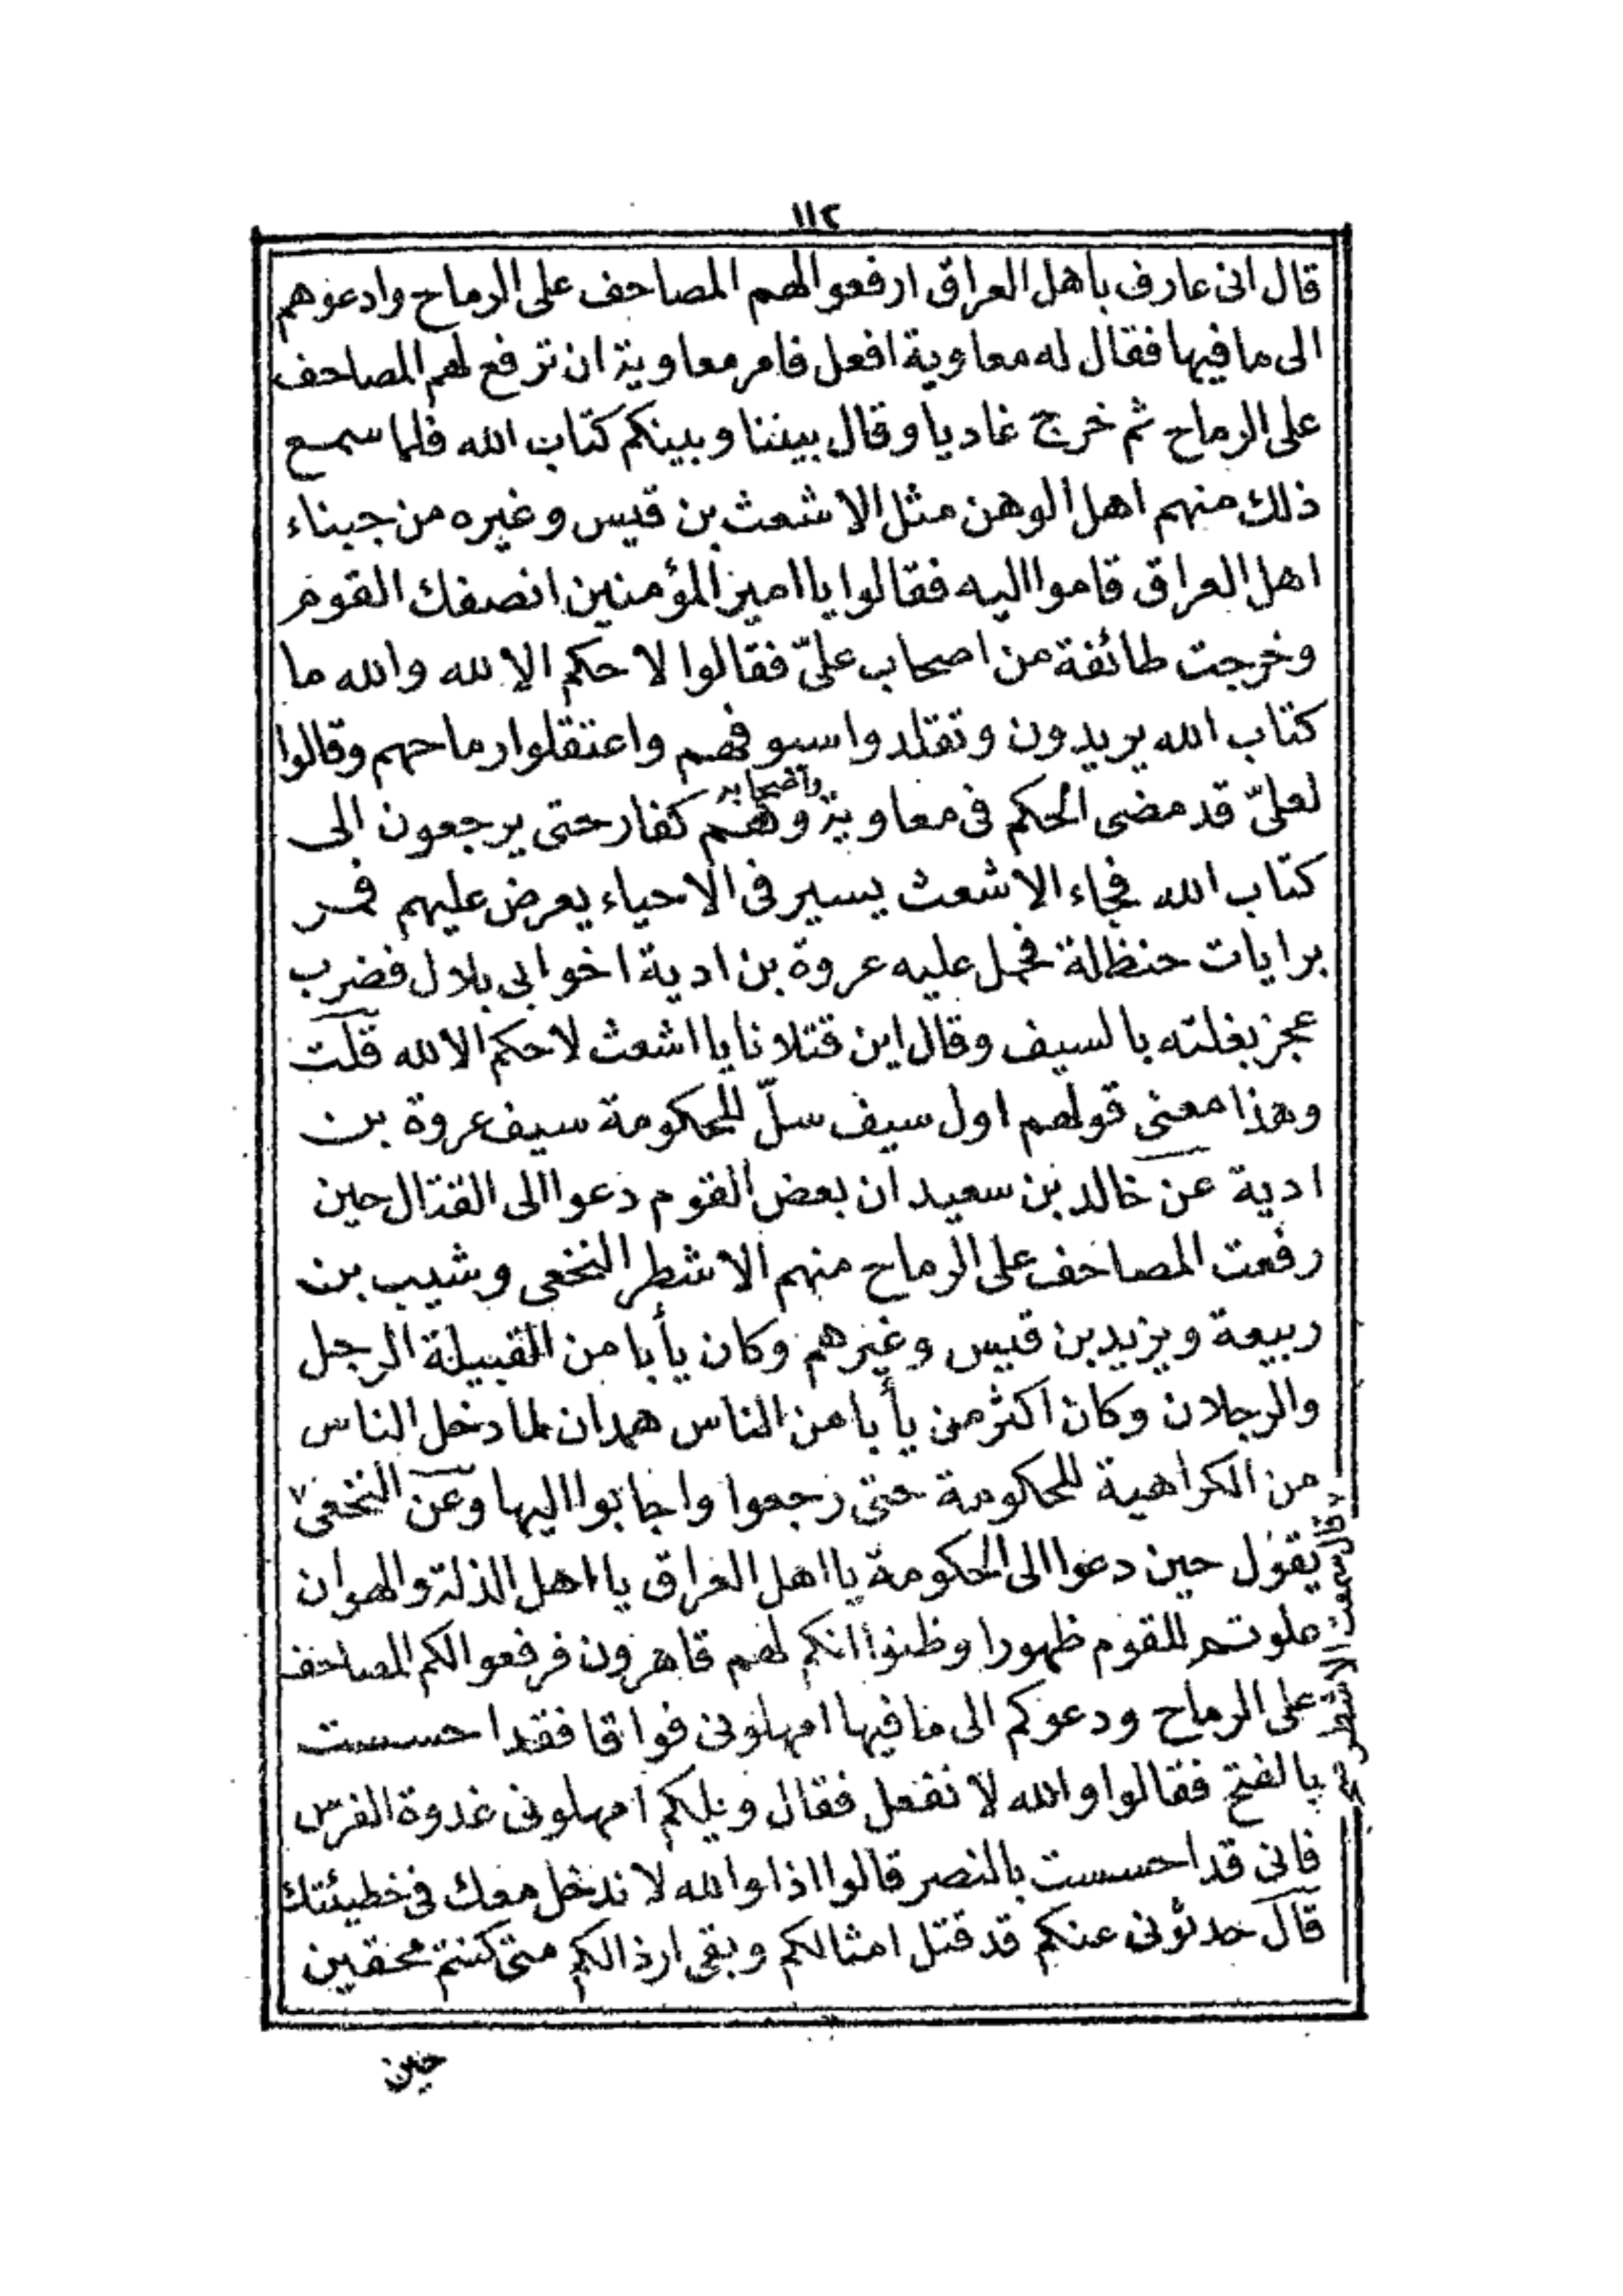 ١١٢
قال انى عارف باهل العراق ارفعوا لهم المصاحف على الرماح وادعوهم
الى ما فيها فقال له معاوية افعل فامر معاوية ان ترفع لهم المصاحف
على الرماح ثم خرج غاديا وقال بيننا وبينكم كتاب الله فلما سمع
ذلك منهم اهل الوهن مثل الاشعث بن قيس وغيره من جبناء
اهل العراق قاموا اليه فقالوا يا امير المؤمنين انصفك القوم
وخرجت طائفة من اصحاب علىّ فقالوا لا حكم الا لله والله ما
كتاب الله يريدون وتقلدوا سيوفهم واعتقلوا رماحهم وقالوا
واصحابه
لعلىّ قد مضى الحكم فى معاوية وهم كفار حتى يرجعون الى
كتاب الله فجاء الاشعث يسير فى الاحياء يعرض عليهم فمر
برايات حنظلة فحمل عليه عروة بن ادية اخو ابى بلال فضرب
عجز بغلته بالسيف وقال اين قتلانا يا اشعث لا حكم الا لله قلت
وهذا معنى قولهم اول سيف سلّ للحكومة سيف عروة بن
ادية عن خالد بن سعيد ان بعض القوم دعوا الى القتال حين
رفعت المصاحف على الرماح منهم الاشطر النخعى وشبيب بن
ربيعة ويزيد بن قيس وغيرهم وكان يأبا من القبيلة الرجل
والرجلان وكان اكثر من يأبا من الناس همدان لما دخل الناس
من الكراهية للحكومة حتى رجعوا واجابوا اليها وعن النخعى
قال سمعت الاشطر
يقول حين دعوا الى الحكومة يا اهل العراق يا اهل الذلة والهوان
علوتم للقوم ظهورا وظنوا انكم لهم قاهرون فرفعوا لكم المصاحف
على الرماح ودعوكم الى ما فيها امهلونى فواقا فقد احسست
بالفتح فقالوا والله لا نفعل فقال ويلكم امهلونى غدوة الفرس
فانى قد احسست بالنصر قالوا اذا والله لا ندخل معك فى خطيئتك
قال حدثونى عنكم قد قتل امثالكم وبقى ارذالكم متى كنتم محقين
حين